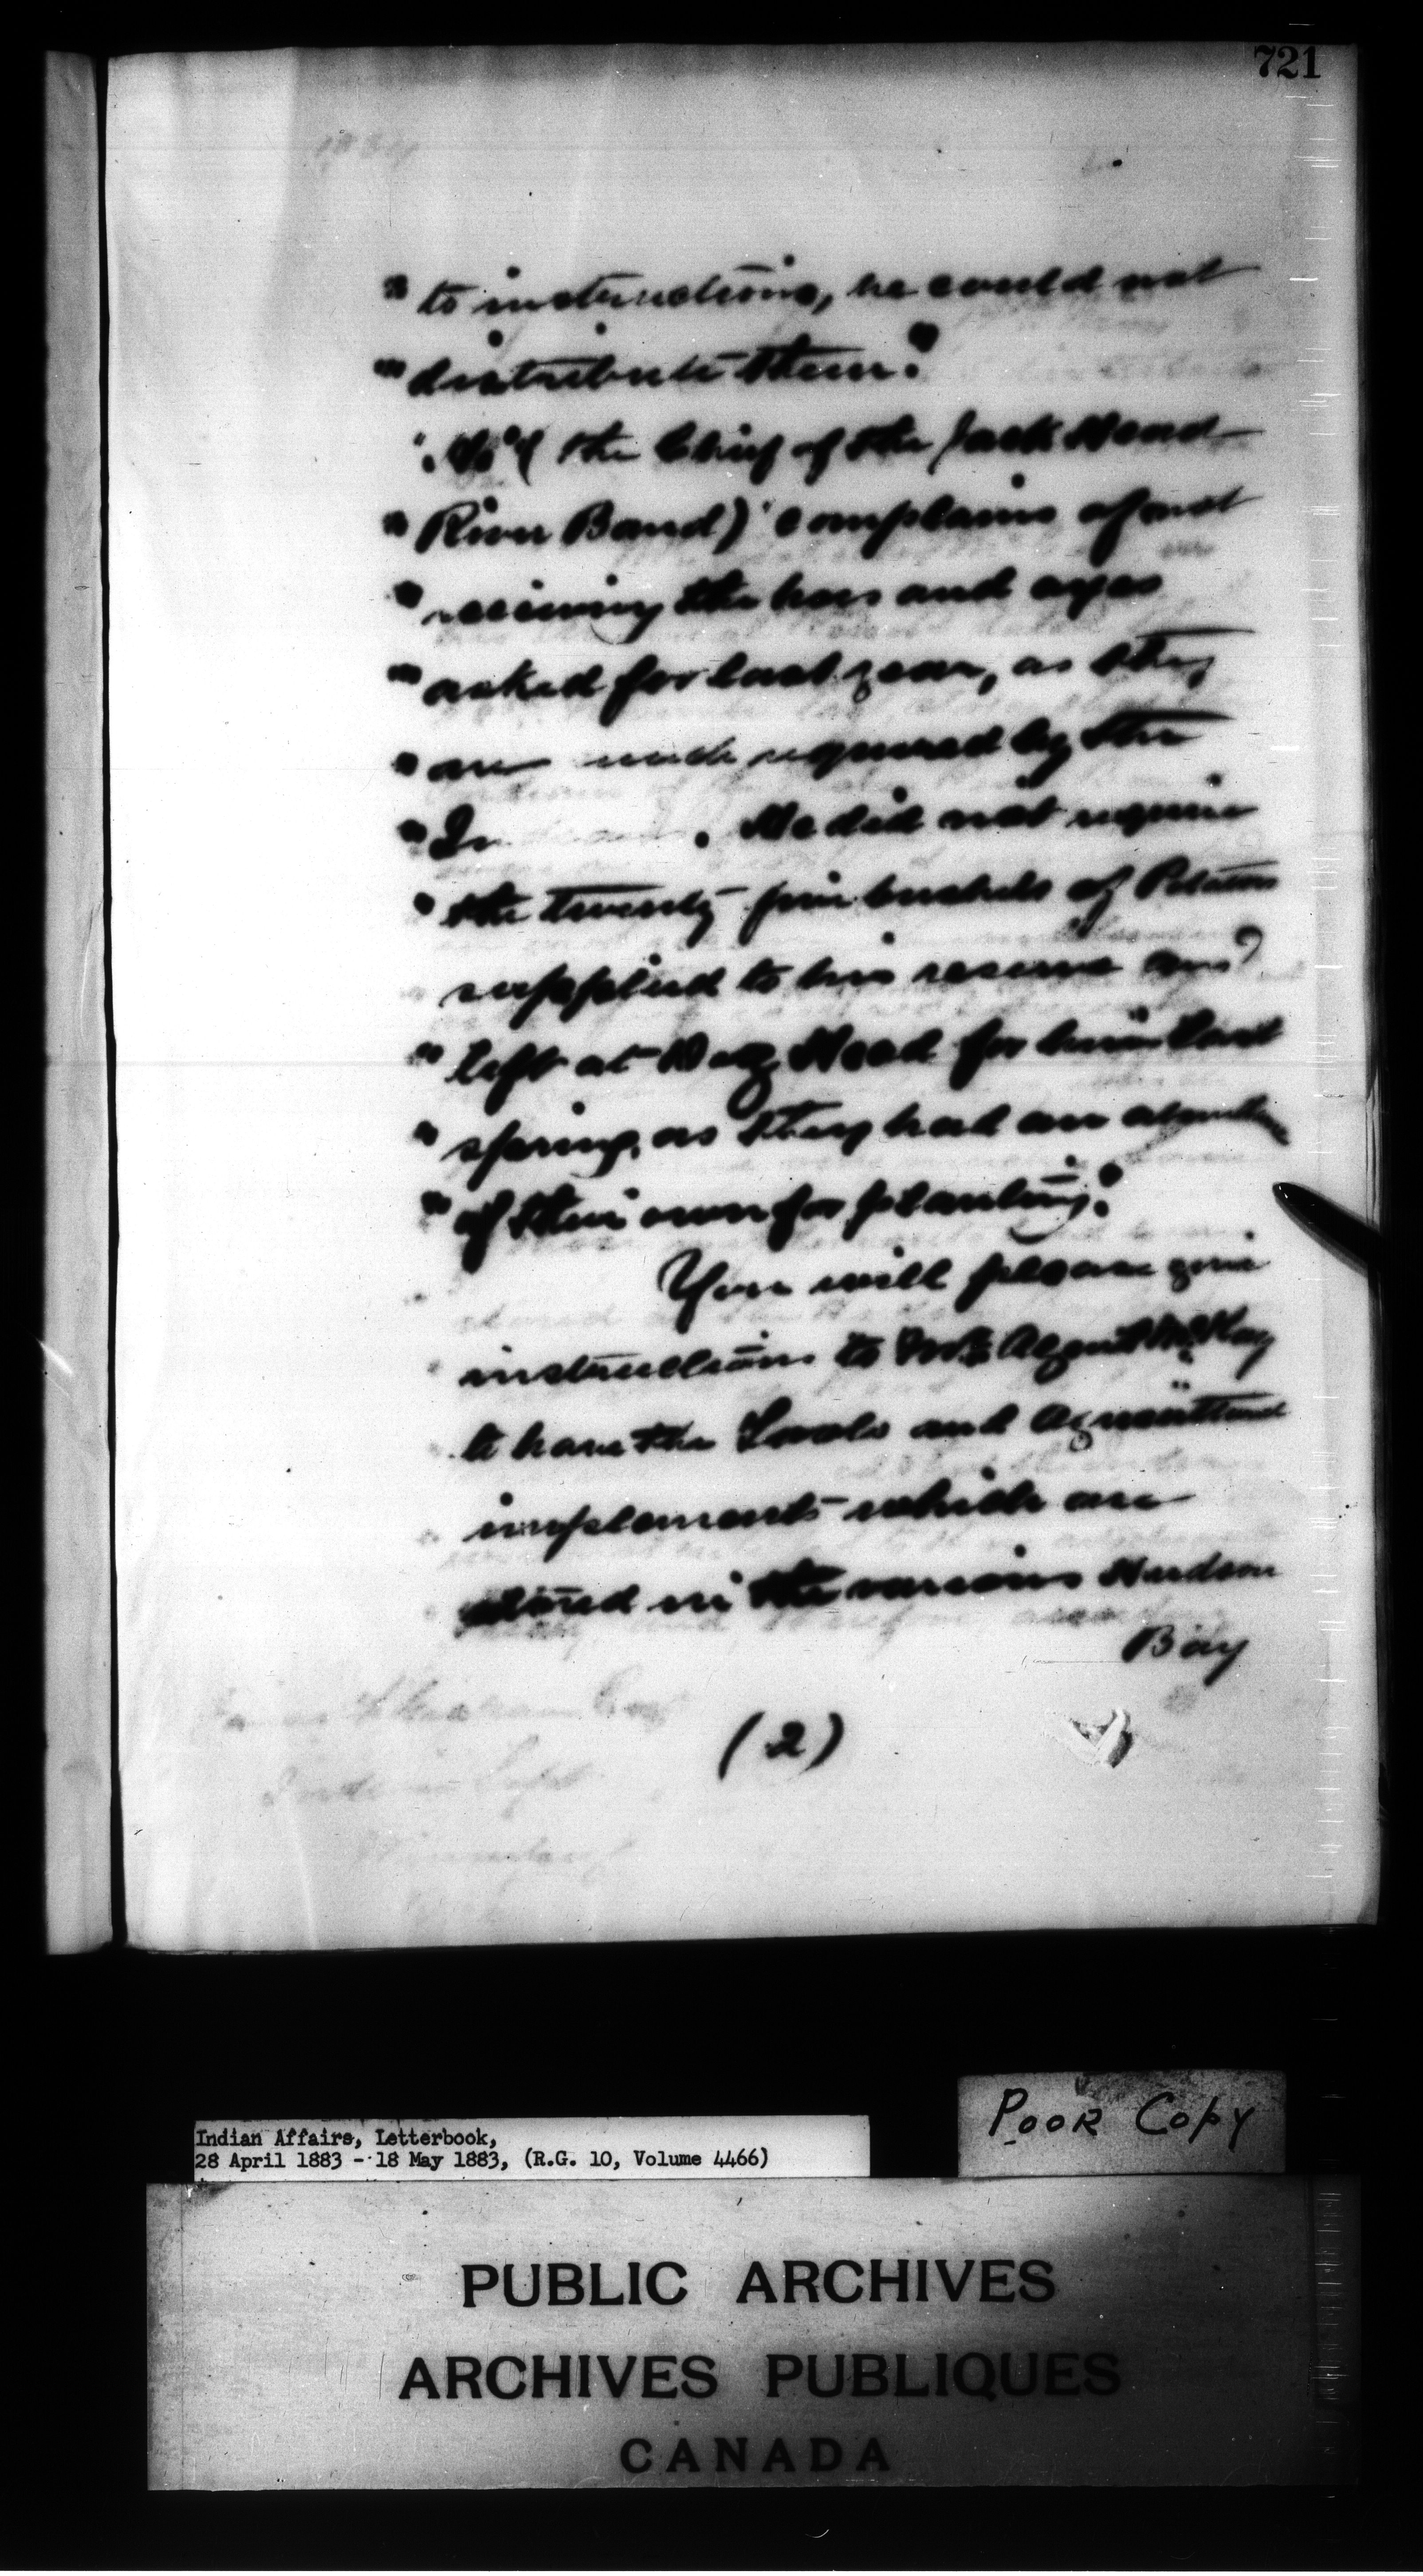 721
" to instructions, he could not
" distribute them."
the Chief of the Jack Head
" River Band) complains of not
" receiving the hoes and axes
" asked for last year, as they
" are much required by the
" In . He did not require
" the twenty five bushels of Potatoes
supplied to his reserve and
" left at Dog Head for him last
" spring, as they had an abundance
" of their own for planting."
You will please give
instructions to Agent McKay
to have the Tools and Agricultural
implements which are
stored in the various Hudson
Bay
(2)
POOR COPY
Indian Affairs, Letterbook,
28 April 1883 - 18 May 1883, (R.G. 10, Volume 4466)
PUBLIC ARCHIVES
ARCHIVES PUBLIQUES
CANADA